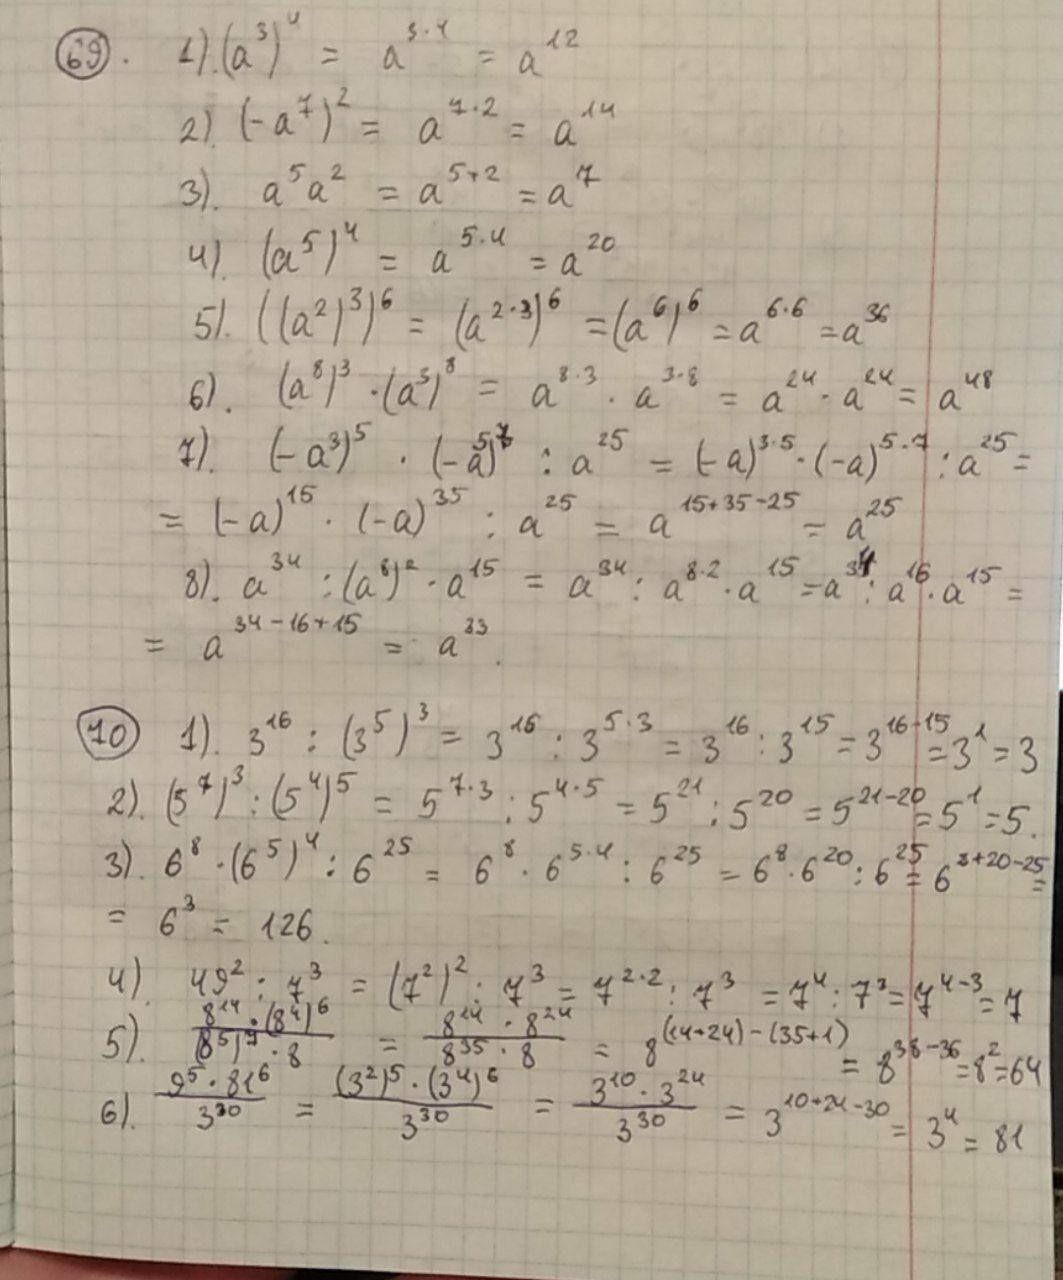 69. 1). (a³)⁴ = a³·⁴ = a¹²
2). (-a⁷)² = a⁷·² = a¹⁴
3). a⁵a² = a⁵⁺² = a⁷
4). (a⁵)⁴ = a⁵·⁴ = a²⁰
5). ((a²)³)⁶ = (a²·³)⁶ = (a⁶)⁶ = a⁶·⁶ = a³⁶
6). (a⁸)³ · (a³)⁸ = a⁸·³ · a³·⁸ = a²⁴ · a²⁴ = a⁴⁸
7). (-a³)⁵ · (-a⁵)⁷ : a²⁵ = (-a)³·⁵ · (-a)⁵·⁷ : a²⁵ =
= (-a)¹⁵ · (-a)³⁵ : a²⁵ = a¹⁵⁺³⁵⁻²⁵ = a²⁵
8). a³⁴ : (a⁸)² · a¹⁵ = a³⁴ : a⁸·² · a¹⁵ = a³⁴ : a¹⁶ · a¹⁵ =
= a³⁴⁻¹⁶⁺¹⁵ = a³³.
70 1). 3¹⁶ : (3⁵)³ = 3¹⁶ : 3⁵·³ = 3¹⁶ : 3¹⁵ = 3¹⁶⁻¹⁵ = 3¹ = 3
2). (5⁷)³ : (5⁴)⁵ = 5⁷·³ : 5⁴·⁵ = 5²¹ : 5²⁰ = 5²¹⁻²⁰ = 5¹ = 5.
3). 6⁸ · (6⁵)⁴ : 6²⁵ = 6⁸ · 6⁵·⁴ : 6²⁵ = 6⁸ · 6²⁰ : 6²⁵ = 6⁸⁺²⁰⁻²⁵ =
= 6³ = 126.
4). 49² : 7³ = (7²)² : 7³ = 7²·² : 7³ = 7⁴ : 7³ = 7⁴⁻³ = 7
5). 8¹⁴ · (8⁴)⁶ / (8⁵)⁷ · 8 = 8¹⁴ · 8²⁴ / 8³⁵ · 8 = 8⁽¹⁴⁺²⁴⁾⁻⁽³⁵⁺¹⁾ = 8³⁸⁻³⁶ = 8² = 64
6). 9⁵ · 81⁶ / 3³⁰ = (3²)⁵ · (3⁴)⁶ / 3³⁰ = 3¹⁰ · 3²⁴ / 3³⁰ = 3¹⁰⁺²⁴⁻³⁰ = 3⁴ = 81